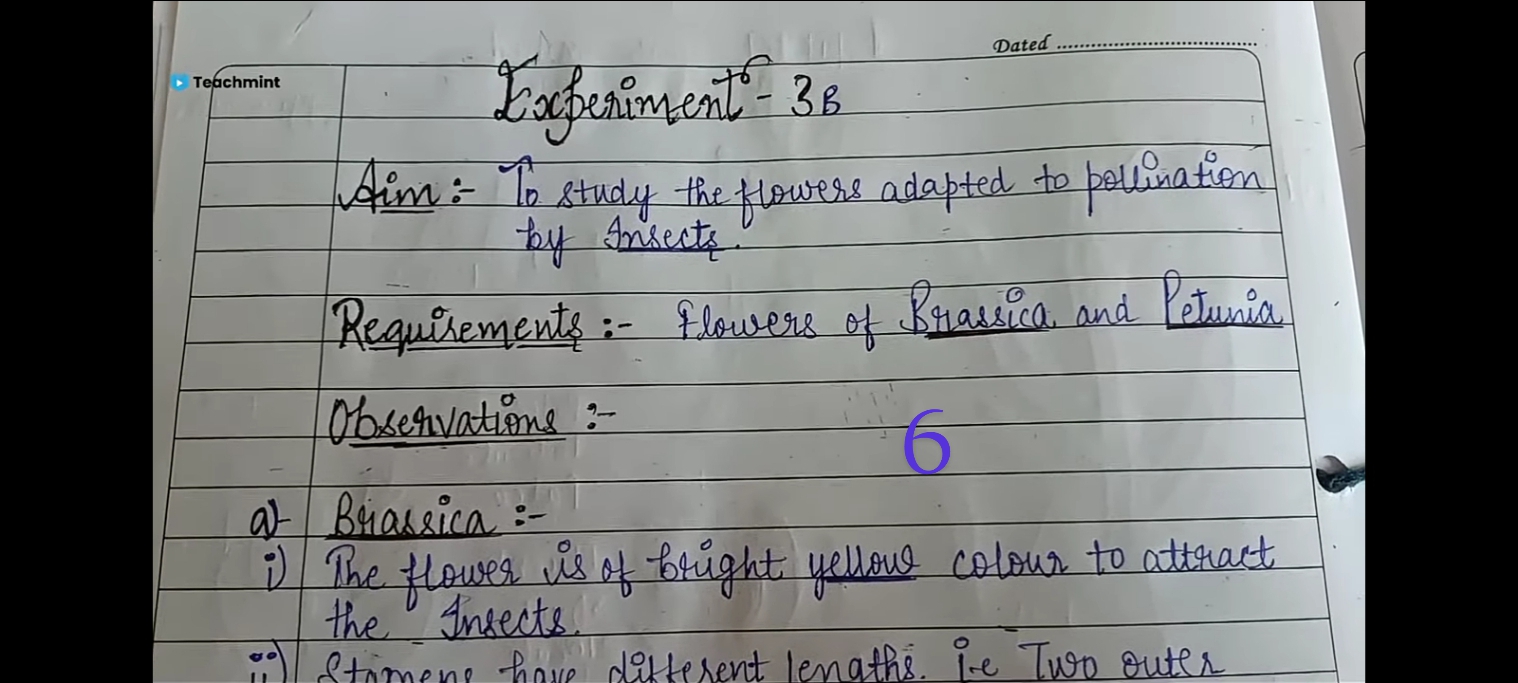 Dated
Teachmint
Experiment - 3B
Aim :- To study the flowers adapted to pollination
by Insects.
Requirements :- Flowers of Brassica and Petunia
Observations :-
6
a) Brassica :-
i) The flower is of bright yellow colour to attract
the Insects.
ii) Stamens have different lengths. i.e Two outer